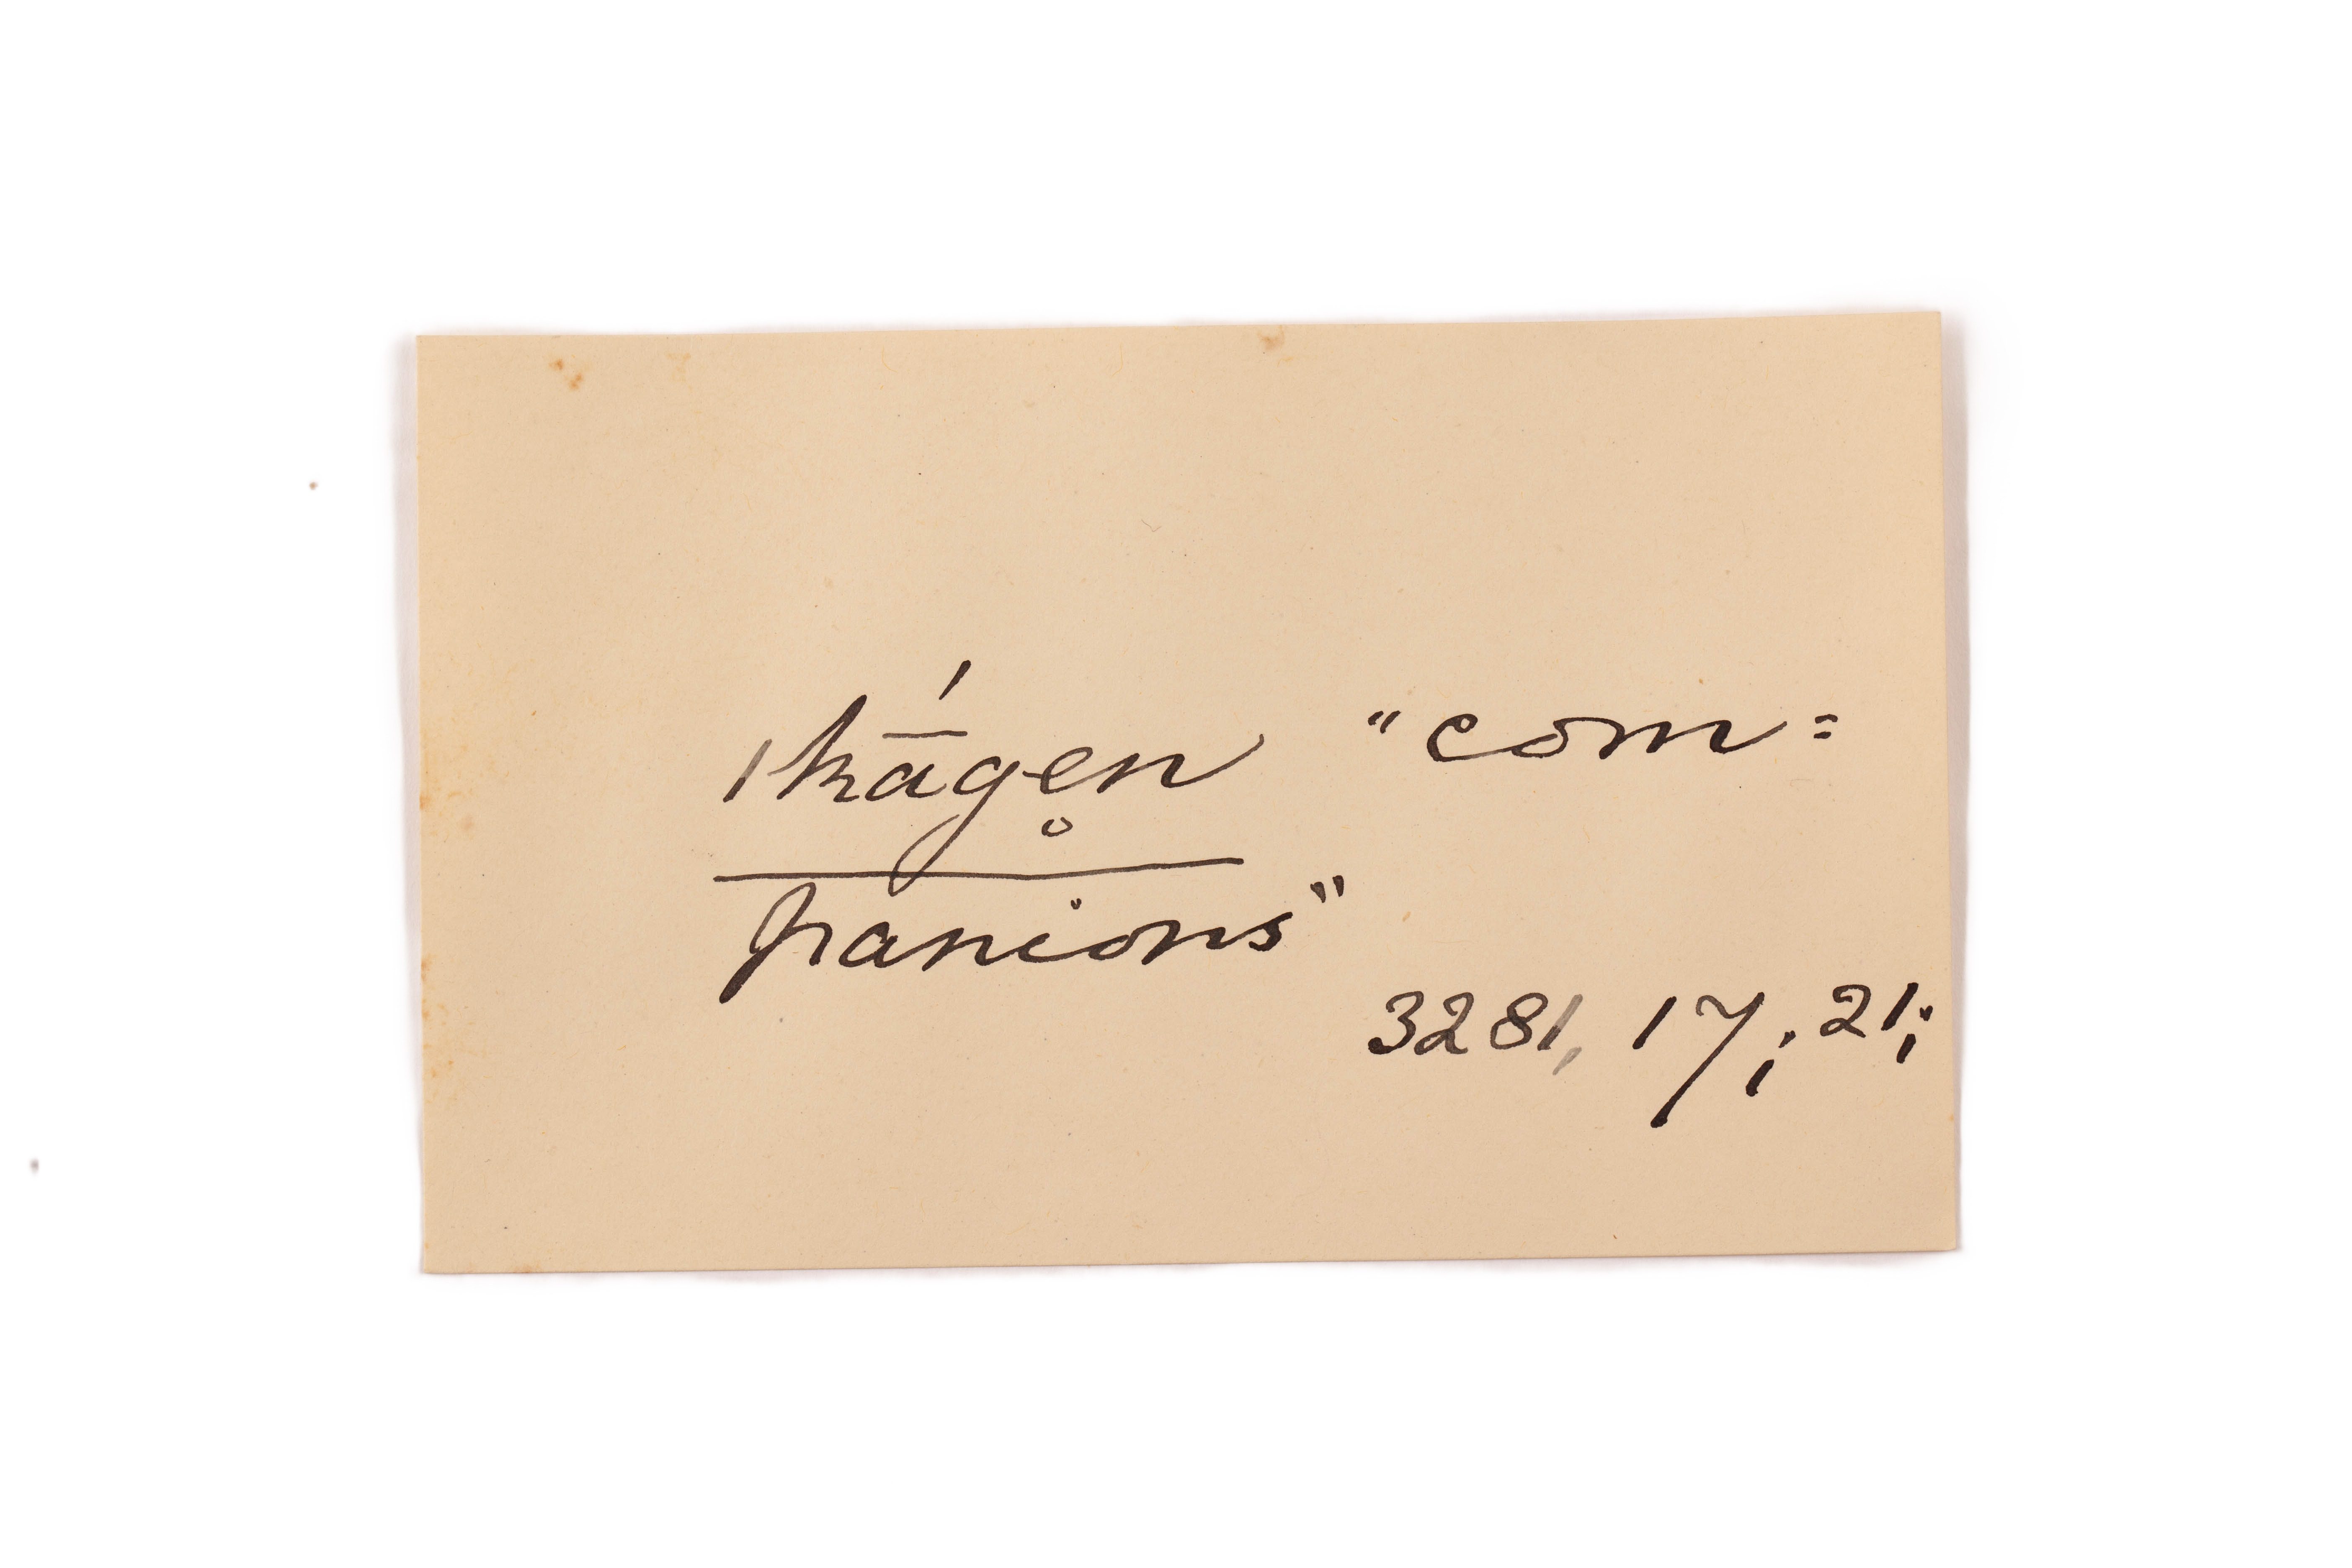 ǀkā́ge̥n "com=
panions"
3281, 17; 21;